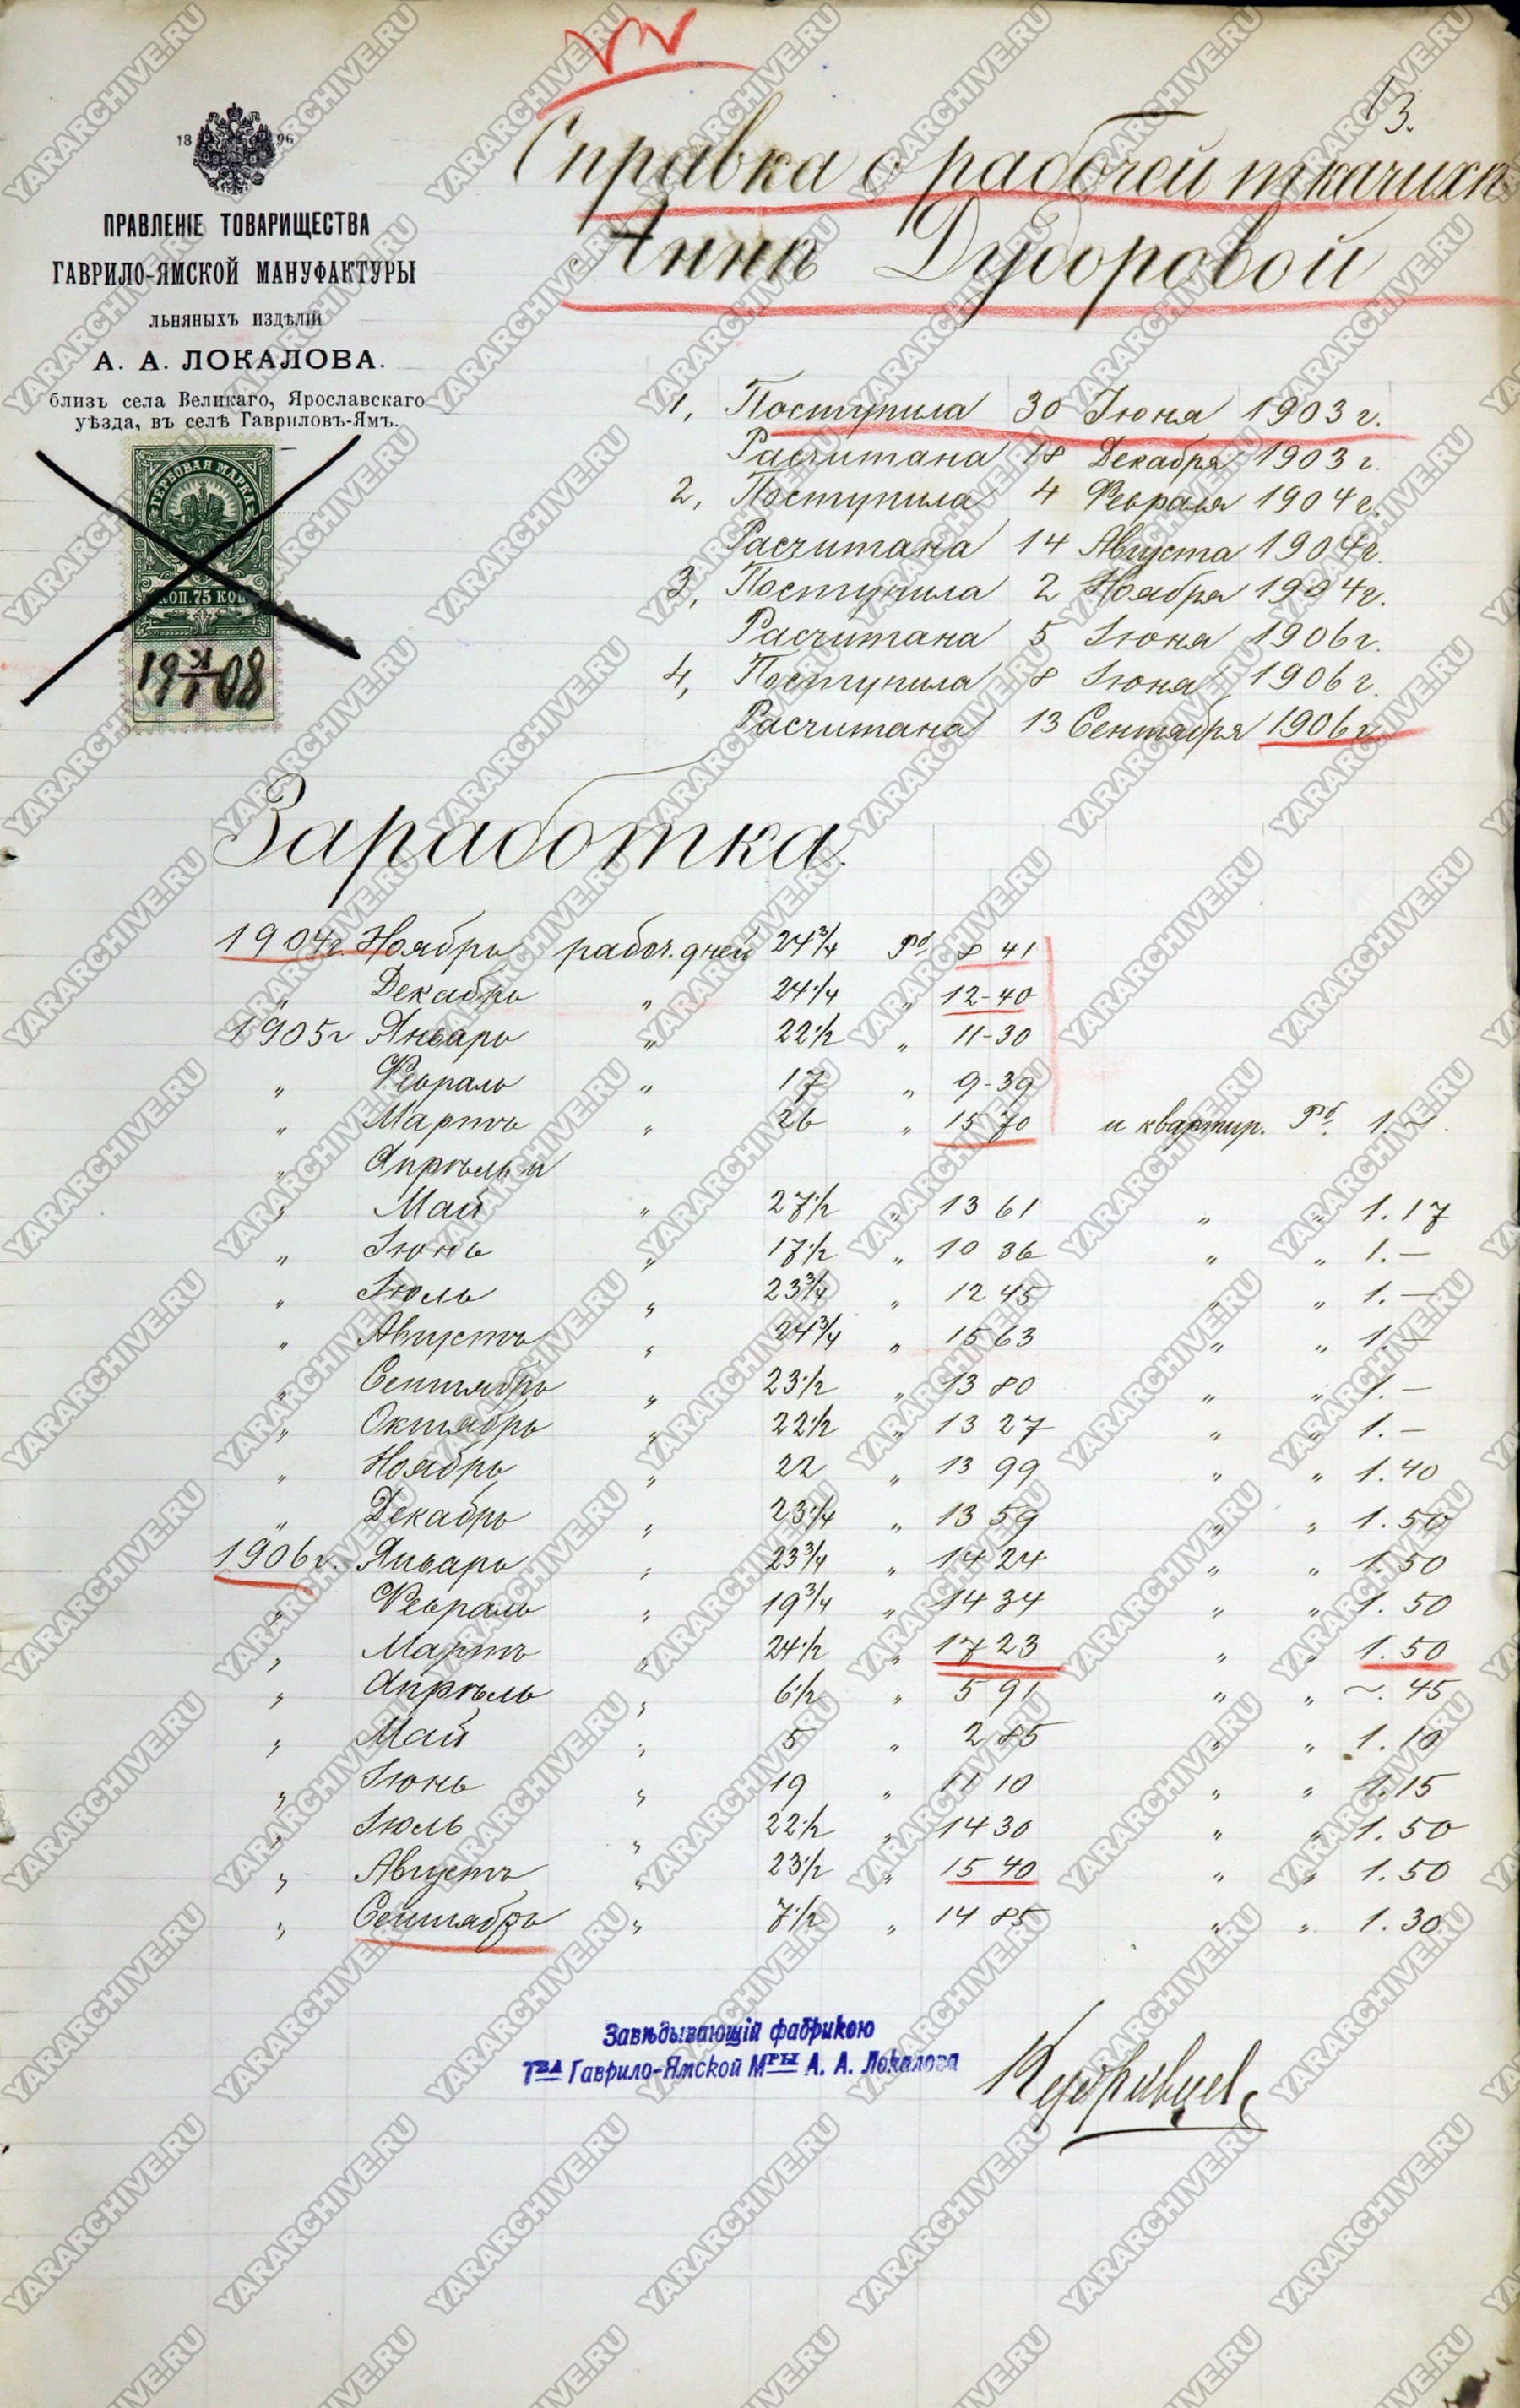 13.
18 96
ПРАВЛЕНІЕ ТОВАРИЩЕСТВА
ГАВРИЛО-ЯМСКОЙ МАНУФАКТУРЫ
ЛЬНЯНЫХЪ ИЗДѢЛІЙ
А. А. ЛОКАЛОВА.
близъ села Великаго, Ярославскаго
уѣзда, въ селѣ Гавриловъ-Ямъ.
ГЕРБОВАЯ МАРКА
КОП. 75 КОП.
19 08
Справка о рабочей ткачихѣ
Аннѣ Дудоровой
1, Поступила 30 Іюня 1903 г.
Расчитана 18 Декабря 1903 г.
2, Поступила 4 Февраля 1904 г.
Расчитана 14 Августа 1904 г.
3, Поступила 2 Ноября 1904 г.
Расчитана 5 Іюня 1906 г.
4, Поступила 8 Іюня 1906 г.
Расчитана 13 Сентября 1906 г.
Заработка.
1904 г. Ноябрь рабоч. дней 24 3/4 Рб 8 41
" Декабрь " 24 1/4 " 12-40
1905 г Январь " 22 1/2 " 11-30
" Февраль " 17 " 9-39
" Мартъ " 26 " 15 70 и квартир. Рб. 1. ~
" Апрѣль и
" Май " 27 1/2 " 13 61 " " 1. 17
" Іюнь " 17 1/2 " 10 36 " " 1. —
" Іюль " 23 3/4 " 12 45 " " 1. —
" Августъ " 24 3/4 " 15 63 " " 1. —
" Сентябрь " 23 1/2 " 13 80 " " 1. —
" Октябрь " 22 1/2 " 13 27 " " 1. —
" Ноябрь " 22 " 13 99 " " 1. 40
" Декабрь " 23 1/4 " 13 59 " " 1. 50
1906 г. Январь " 23 3/4 " 14 24 " " 1. 50
" Февраль " 19 3/4 " 14 34 " " 1. 50
" Мартъ " 24 1/2 " 17 23 " " 1. 50
" Апрѣль " 6 1/2 " 5 91 " " ~. 45
" Май " 5 " 2 85 " " 1. 10
" Іюнь " 19 " 11 10 " " 1. 15
" Іюль " 22 1/2 " 14 30 " " 1. 50
" Августъ " 23 1/2 " 15 40 " " 1. 50
" Сентябрь " 7 1/2 " 14 85 " " 1. 30
Завѣдывающій фабрикою
Тва Гаврило-Ямской Мры А. А. Локалова
YARARCHIVE.RU